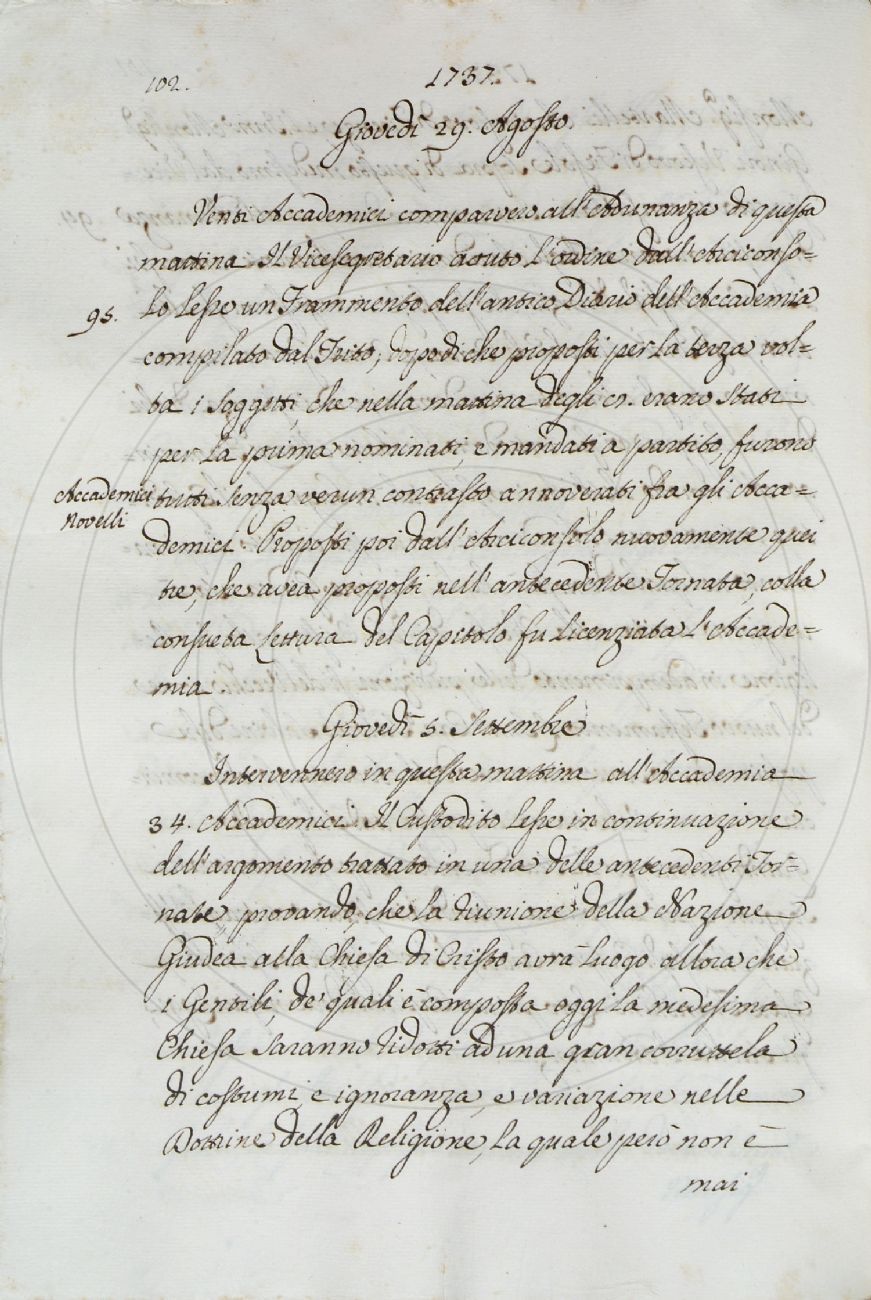 102. 1737.
Giovedì 29. Agosto.
Venti Accademici comparvero all'Adunanza di questa
mattina. Il Vicesegretario avuto l'ordine dall'Arciconso=
95. lo lesse un Frammento dell'antico Diario dell'Accademia
compilato dal Trito, dopo di che proposti per la terza vol=
ta i soggetti, che nella mattina degli 11. erano stati
per la prima nominati, e mandati a partito, furono
Accademici Novelli
tutti senza verun contrasto annoverati fra gli Acca=
demici. Proposti poi dall'Arciconsolo nuovamente quei
tre, che avea proposti nell'antecedente Tornata, colla
consueta lettura del Capitolo fu licenziata l'Accade=
mia.
Giovedì 5. Settembre
Intervennero in questa mattina all'Accademia
34. Accademici. Il Custodito lesse in continuazione
dell'argomento trattato in una delle antecedenti Tor=
nate, provando, che la riunione della Nazione
Giudea alla Chiesa di Cristo avrà luogo allora che
i Gentili, de' quali è composta oggi la medesima
Chiesa saranno ridotti ad una gran corruttela
di costumi, e ignoranza, e variazione nelle
Dottrine della Religione, la quale però non è
mai